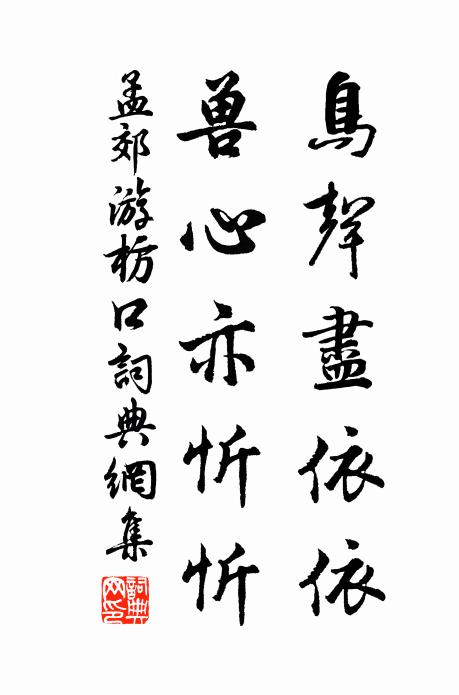 鳥聲盡依依
兽心亦忻忻
孟郊游枋口詞典網集
詞典網印